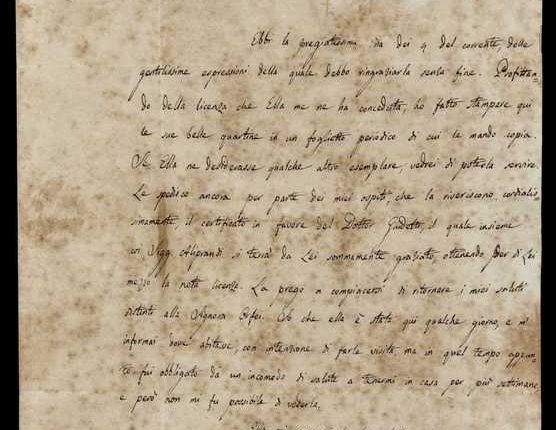 Ebbi la pregiatissima sua dei 9 del corrente, delle
gentilissime espressioni della quale debbo ringraziarla senza fine. Profittan-
do della licenza che Ella me ne ha conceduta, ho fatto stampare qui
le sue belle quartine in un foglietto periodico di cui le mando copia.
Se Ella ne desiderasse qualche altro esemplare, vedrei di poterla servire.
Le spedisco ancora per parte dei miei ospiti, che la riveriscono cordialis-
simamente, il certificato in favore del Dottor Gudetti, il quale insieme
coi Sigg. Aliprandi si terrà da Lei sommamente graziato, ottenendo per di Lei
mezzo la nota licenza. La prego a compiacersi di ritornare i miei saluti
distinti alla Signora Orfei. So che ella è stata qui qualche giorno, e m'
informai dove abitava, con intenzione di farle visita, ma in quel tempo appun-
to fui obbligato da un incomodo di salute a tenermi in casa per più settimane,
e però non mi fu possibile di vederla.